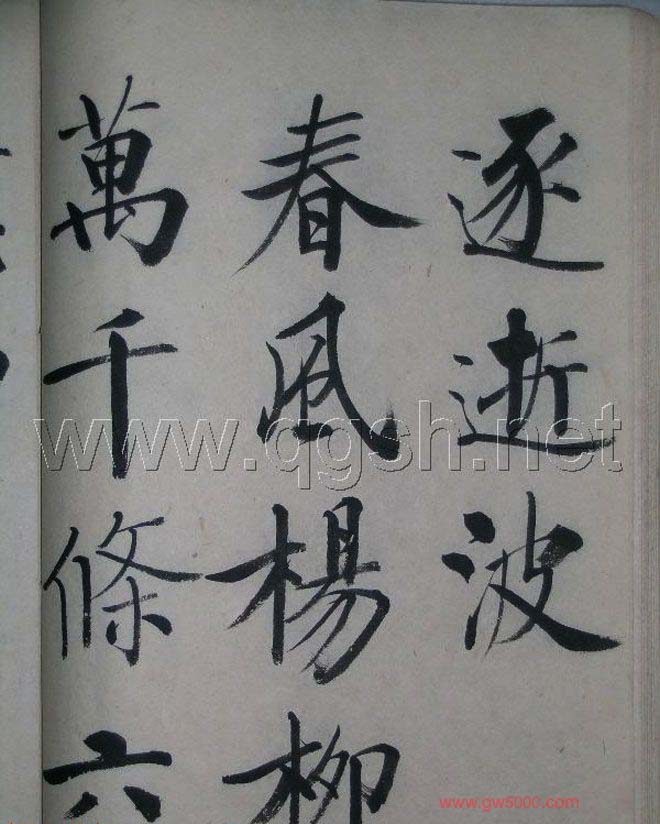 逐逝波
春風楊柳
萬千條六
www.qgsh.net
www.gw5000.com